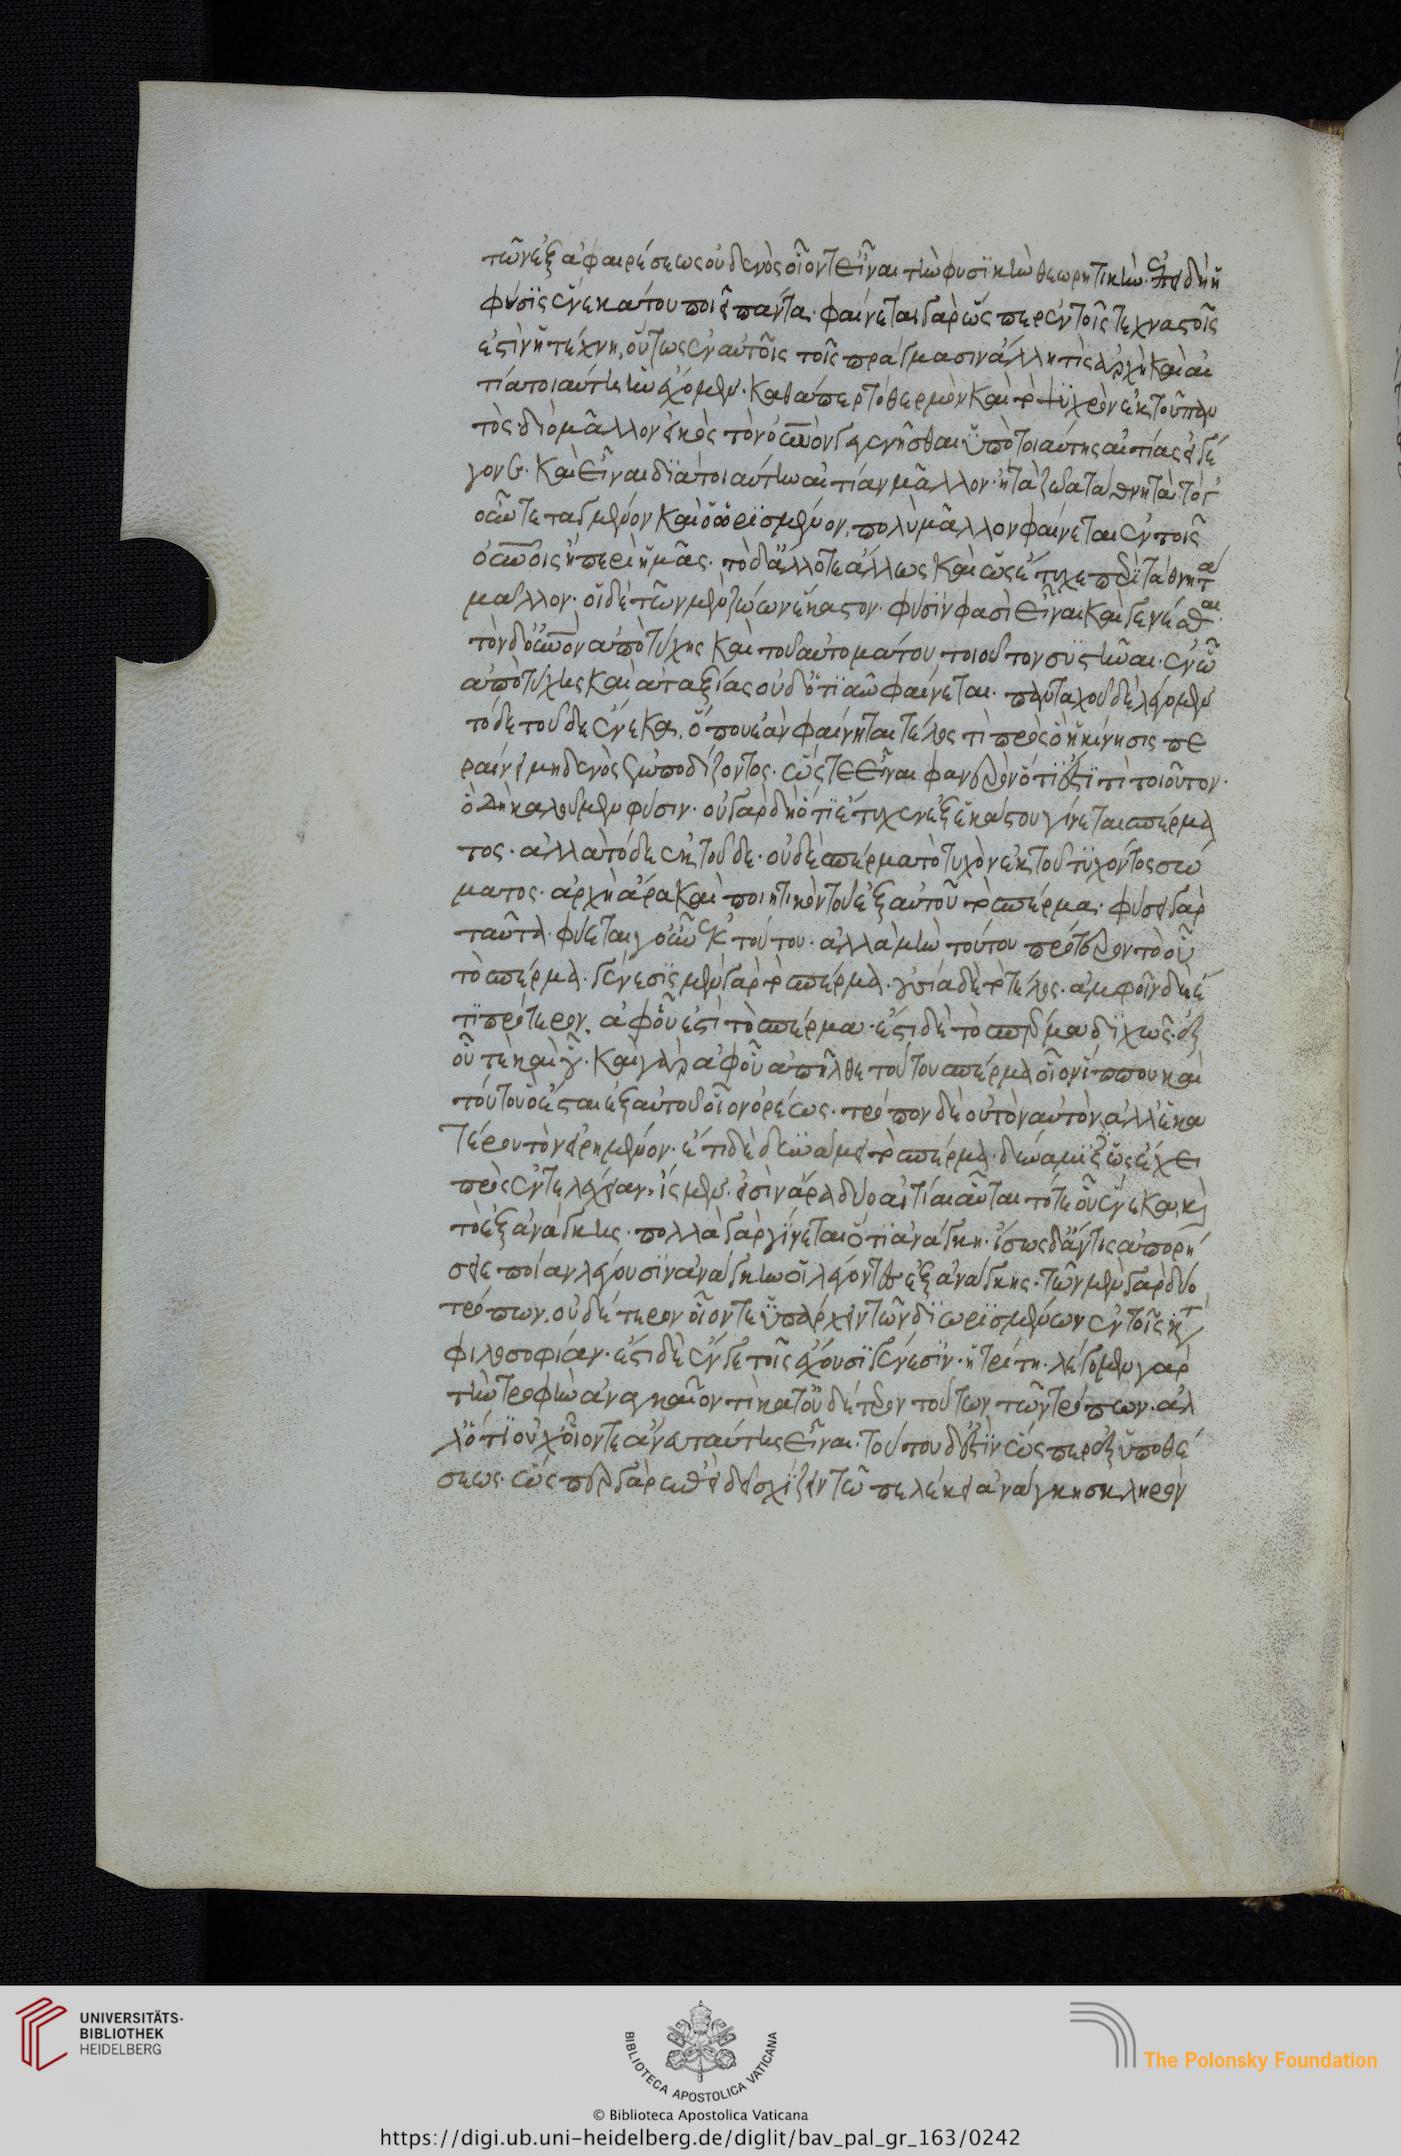 τῶν ἐξ ἀφαιρέσεως οὐδενὸς οἷόντ εἶναι τὴν φυσϊκὴν θεωρητικὴν. ἐπειδὴ ἡ
φύσϊς ἕνεκα του ποιεῖ πάντα. φαίνεται γὰρ ὥσπερ ἐν τοῖς τεχναστοῖς
ἐστὶν ἡ τέχνη, οὕτως ἐν αὐτοῖς τοῖς πράγμασιν ἄλλη τὶς ἀρχὴ καὶ αἰ
τία τοιαύτη ἣν ἔχομεν. καθάπερ τὸ θερμὸν καὶ τὸ ψϋχρὸν ἐκ τοῦ παν
τὸς. διὸ μᾶλλον εἰκὸς τὸν οὐνὸν γεγενῆσθαι ὑπὸ τοιαύτης αἰτίας εἰ γέ
γονε. καὶ εἶναι δϊὰ τοιαύτην αἰτίαν μᾶλλον. ἢ τὰ ζῶα τὰ θνητὰ. τὸ γ
οὖν τεταγμένον καὶ ὡρϊσμένον, πολὺ μᾶλλον φαίνεται ἐν τοῖς
οὐνοῖς ἢ περὶ ἡμᾶς. τὸ δ ἄλλοτε ἄλλως καὶ ὡς ἔτυχε περὶ τὰ θνητὰ
μᾶλλον. οἱ δὲ τῶν μὲν ζώων ἕκαστον. φύσϊν φασὶ εἶναι καὶ γενέσθαι.
τὸν δ οὐνὸν ἀπὸ τύχης καὶ τοῦ αὐτομάτου τοιοῦτον συστῆναι. ἐν ὧ
ἀπὸ τύχης καὶ ἀταξίας οὐδ ὅτϊ αοῦν φαίνεται. πανταχοῦ δὲ λέγομεν
τόδε τοῦδε ἕνεκα, ὅπου ἐὰν φαίνηται τέλος τὶ πρὸς ὃ ἡ κίνησις πε
ραίνει μηδενὸς ἐμποδίζοντος. ὥστε εἶναι φανερὸν ὅτϊ ἔστϊ τὶ τοιοῦτον.
ὃ δὴ καλοῦμεν φύσιν. οὐ γὰρ δὴ ὅτϊ ἔτυχεν ἐξ ἑκάστου γίνεται σπέρμα
τος. ἀλλὰ τόδε ἐκ τοῦδε. οὐδὲ σπέρμα τὸ τυχὸν ἐκ τοῦ τϋχόντος σώ
ματος. ἀρχὴ ἄρα καὶ ποιητικὸν τοῦ ἐξ αὐτοῦ τὸ σπέρμα. φύσει γὰρ
ταῦτα. φύεται γοῦν ἐκ τούτου. ἀλλὰ μὴν τούτου πρότερον τὸ οὗ
τὸ σπέρμα. γένεσϊς μὲν γὰρ τὸ σπέρμα. οὐσία δὲ τὸ τέλος. ἀμφοῖν δὲ ἔ
τϊ πρότερον, ἀφ οὗ ἐστὶ τὸ σπέρμα. ἔστι δὲ τὸ σπέρμα δϊχῶς. ἐξ
οὗ τὲ καὶ οὗ. καὶ γὰρ ἀφ οὗ ἀπῆλθε τούτου σπέρμα οἷον ἵππου καὶ
τούτου ὃ ἔσται ἐξ αὐτοῦ οἷον ὀρέως. τρόπον δὲ οὐ τὸν αὐτὸν ἀλλ ἑκα
τέρου τὸν εἰρημένον. ἔτι δὲ δϋνάμει τὸ σπέρμα. δύναμις δ ὡς ἔχει
πρὸς ἐντελέχειαν, ἴσμεν. εἰσὶν ἄρα δύο αἰτίαι αὗται τό τε οὗ ἕνεκα, καὶ
τὸ ἐξ ἀνάγκης. πολλὰ γὰρ γίνεται ὅτϊ ἀνάγκη. ἴσως δ ἄν τις ἀπορή
σειε ποίαν λέγουσϊν ἀνάγκην οἱ λέγοντες ἐξ ἀνάγκης. τῶν μὲν γὰρ δύο
τρόπων, οὐδέτερον οἷόν τε ὑπάρχειν τῶν δϊωρϊσμένων ἐν τοῖς κατὰ
φιλοσοφίαν. ἔστι δὲ ἔν γε τοῖς ἔχουσϊ γένεσϊν. ἡ τρίτη. λέγομεν γὰρ
τὴν τροφὴν ἀναγκαῖον τὶ κατ οὐδέτερον τούτων τῶν τρόπων. ἀλ
λ ὅτϊ οὐχ οἷόν τε ἄνευ ταύτης εἶναι. τοῦτο δ ἐστὶν ὥσπερ ἐξ ὑποθέ
σεως. ὥσπερ γὰρ ἐπεὶ δεῖ σχίζειν τῶ πελέκει ἀνάγκη σκληρὸν
UNIVERSITÄTS-
BIBLIOTHEK
HEIDELBERG
BIBLIOTECA APOSTOLICA VATICANA
The Polonsky Foundation
© Biblioteca Apostolica Vaticana
https://digi.ub.uni-heidelberg.de/diglit/bav_pal_gr_163/0242